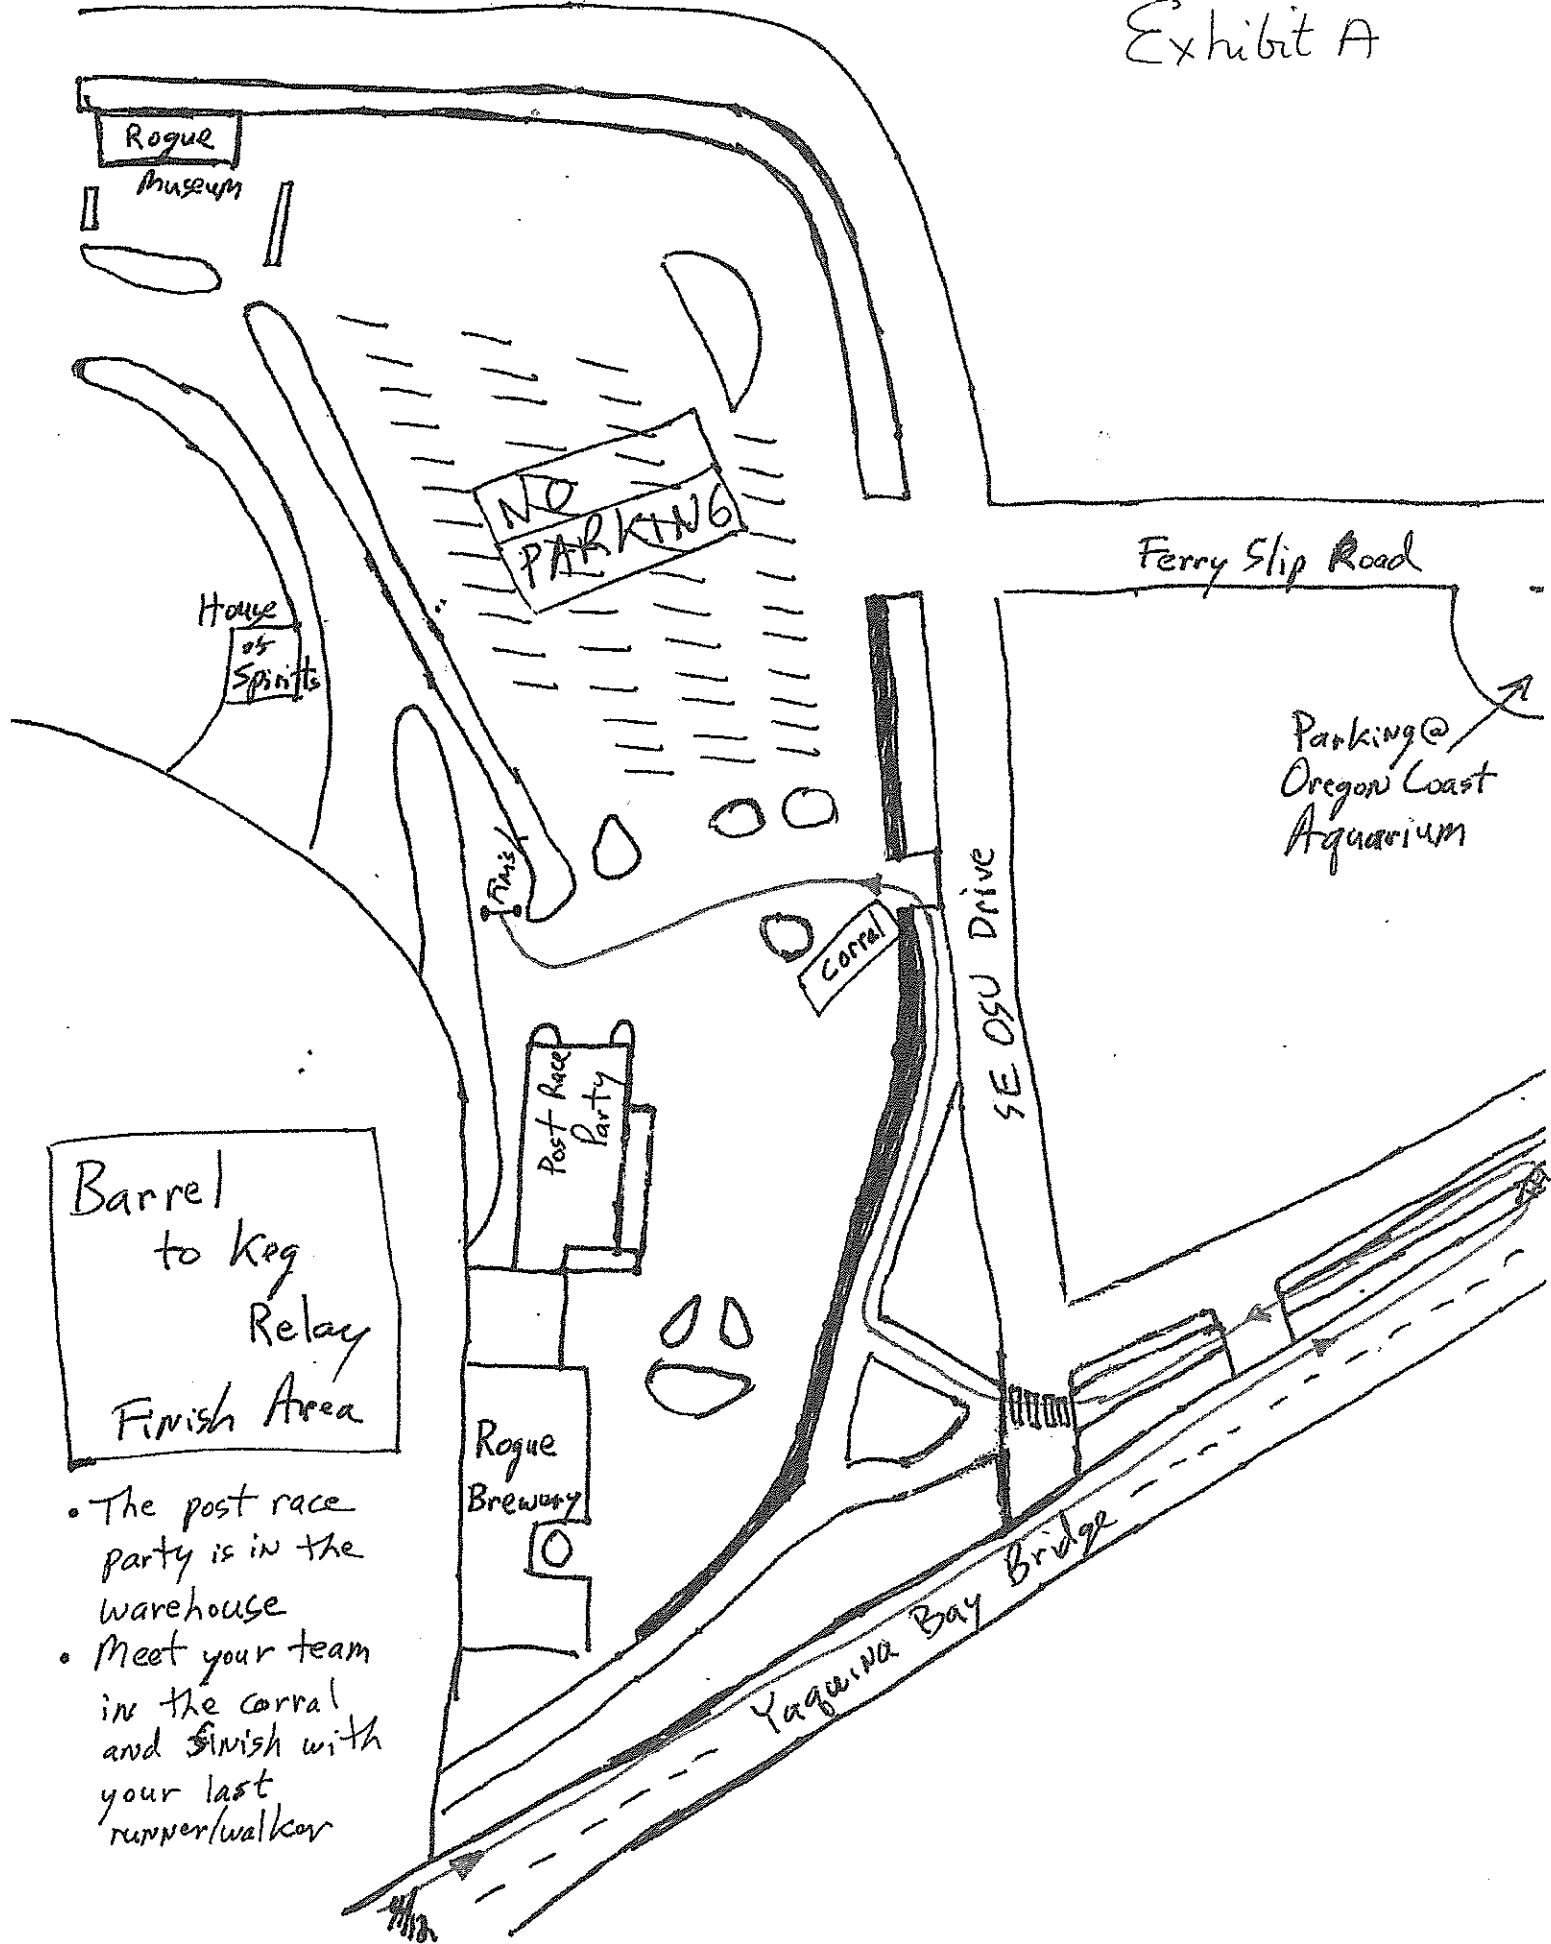 Exhibit A
Rogue
Museum
NO
PARKING
Ferry Slip Road
House
of
Spirits
Parking@
Oregon Coast
Aquarium
Finis
Corral
SE OSU Drive
Post Race
Party
Barrel
to Keg
Relay
Finish Area
Rogue
Brewery
• The post race
party is in the
warehouse
• Meet your team
in the corral
and finish with
your last
runner/walker
Yaquina Bay Bridge